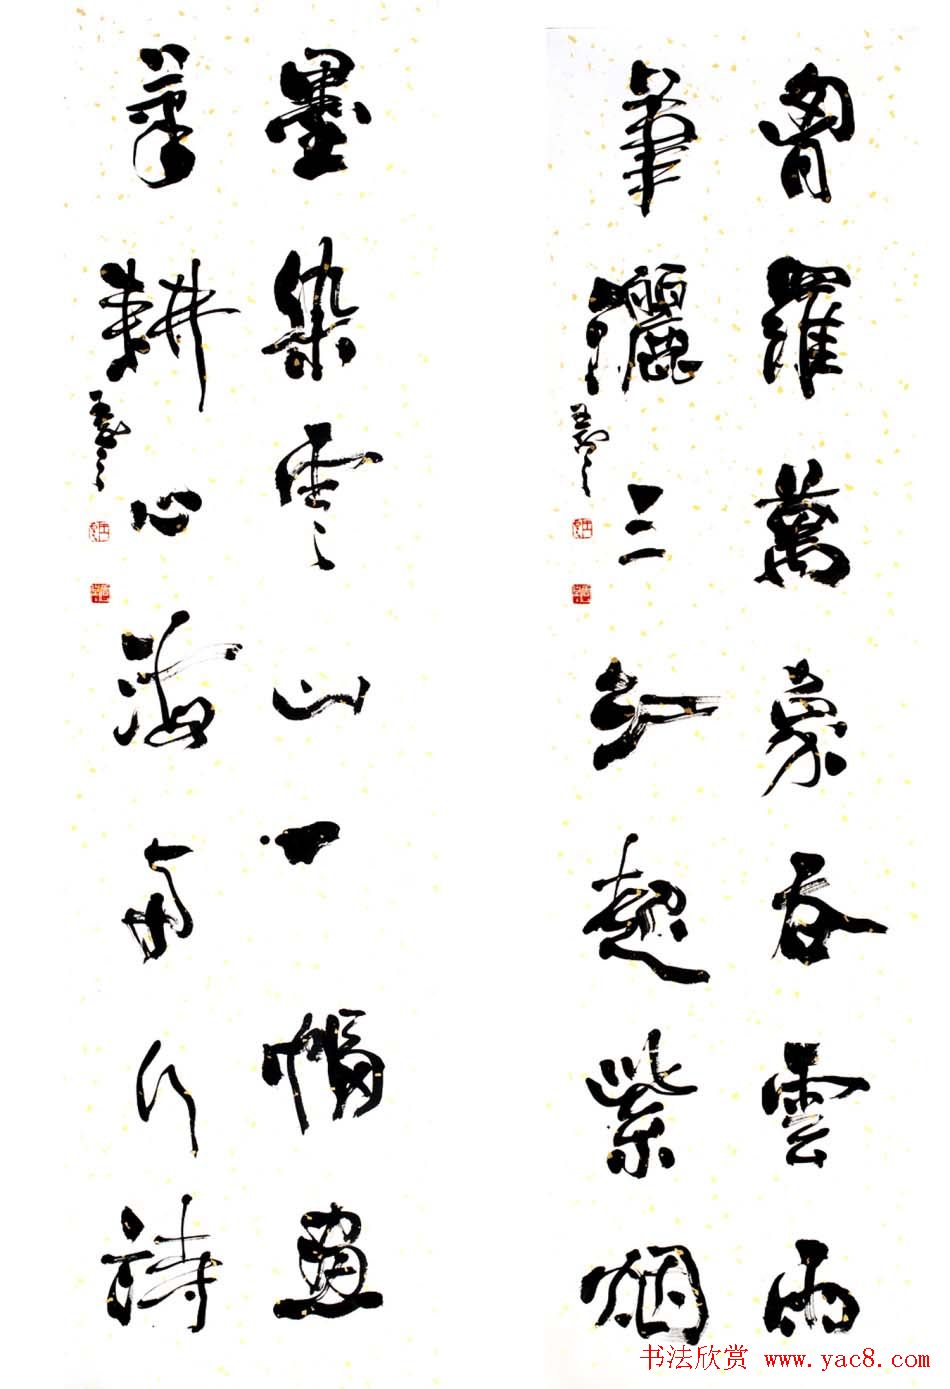 胷羅萬象吞雲雨
筆灑三江起紫烟
墨染雲山一幅畫
筆耕心海行詩
书法欣赏 www.yac8.com